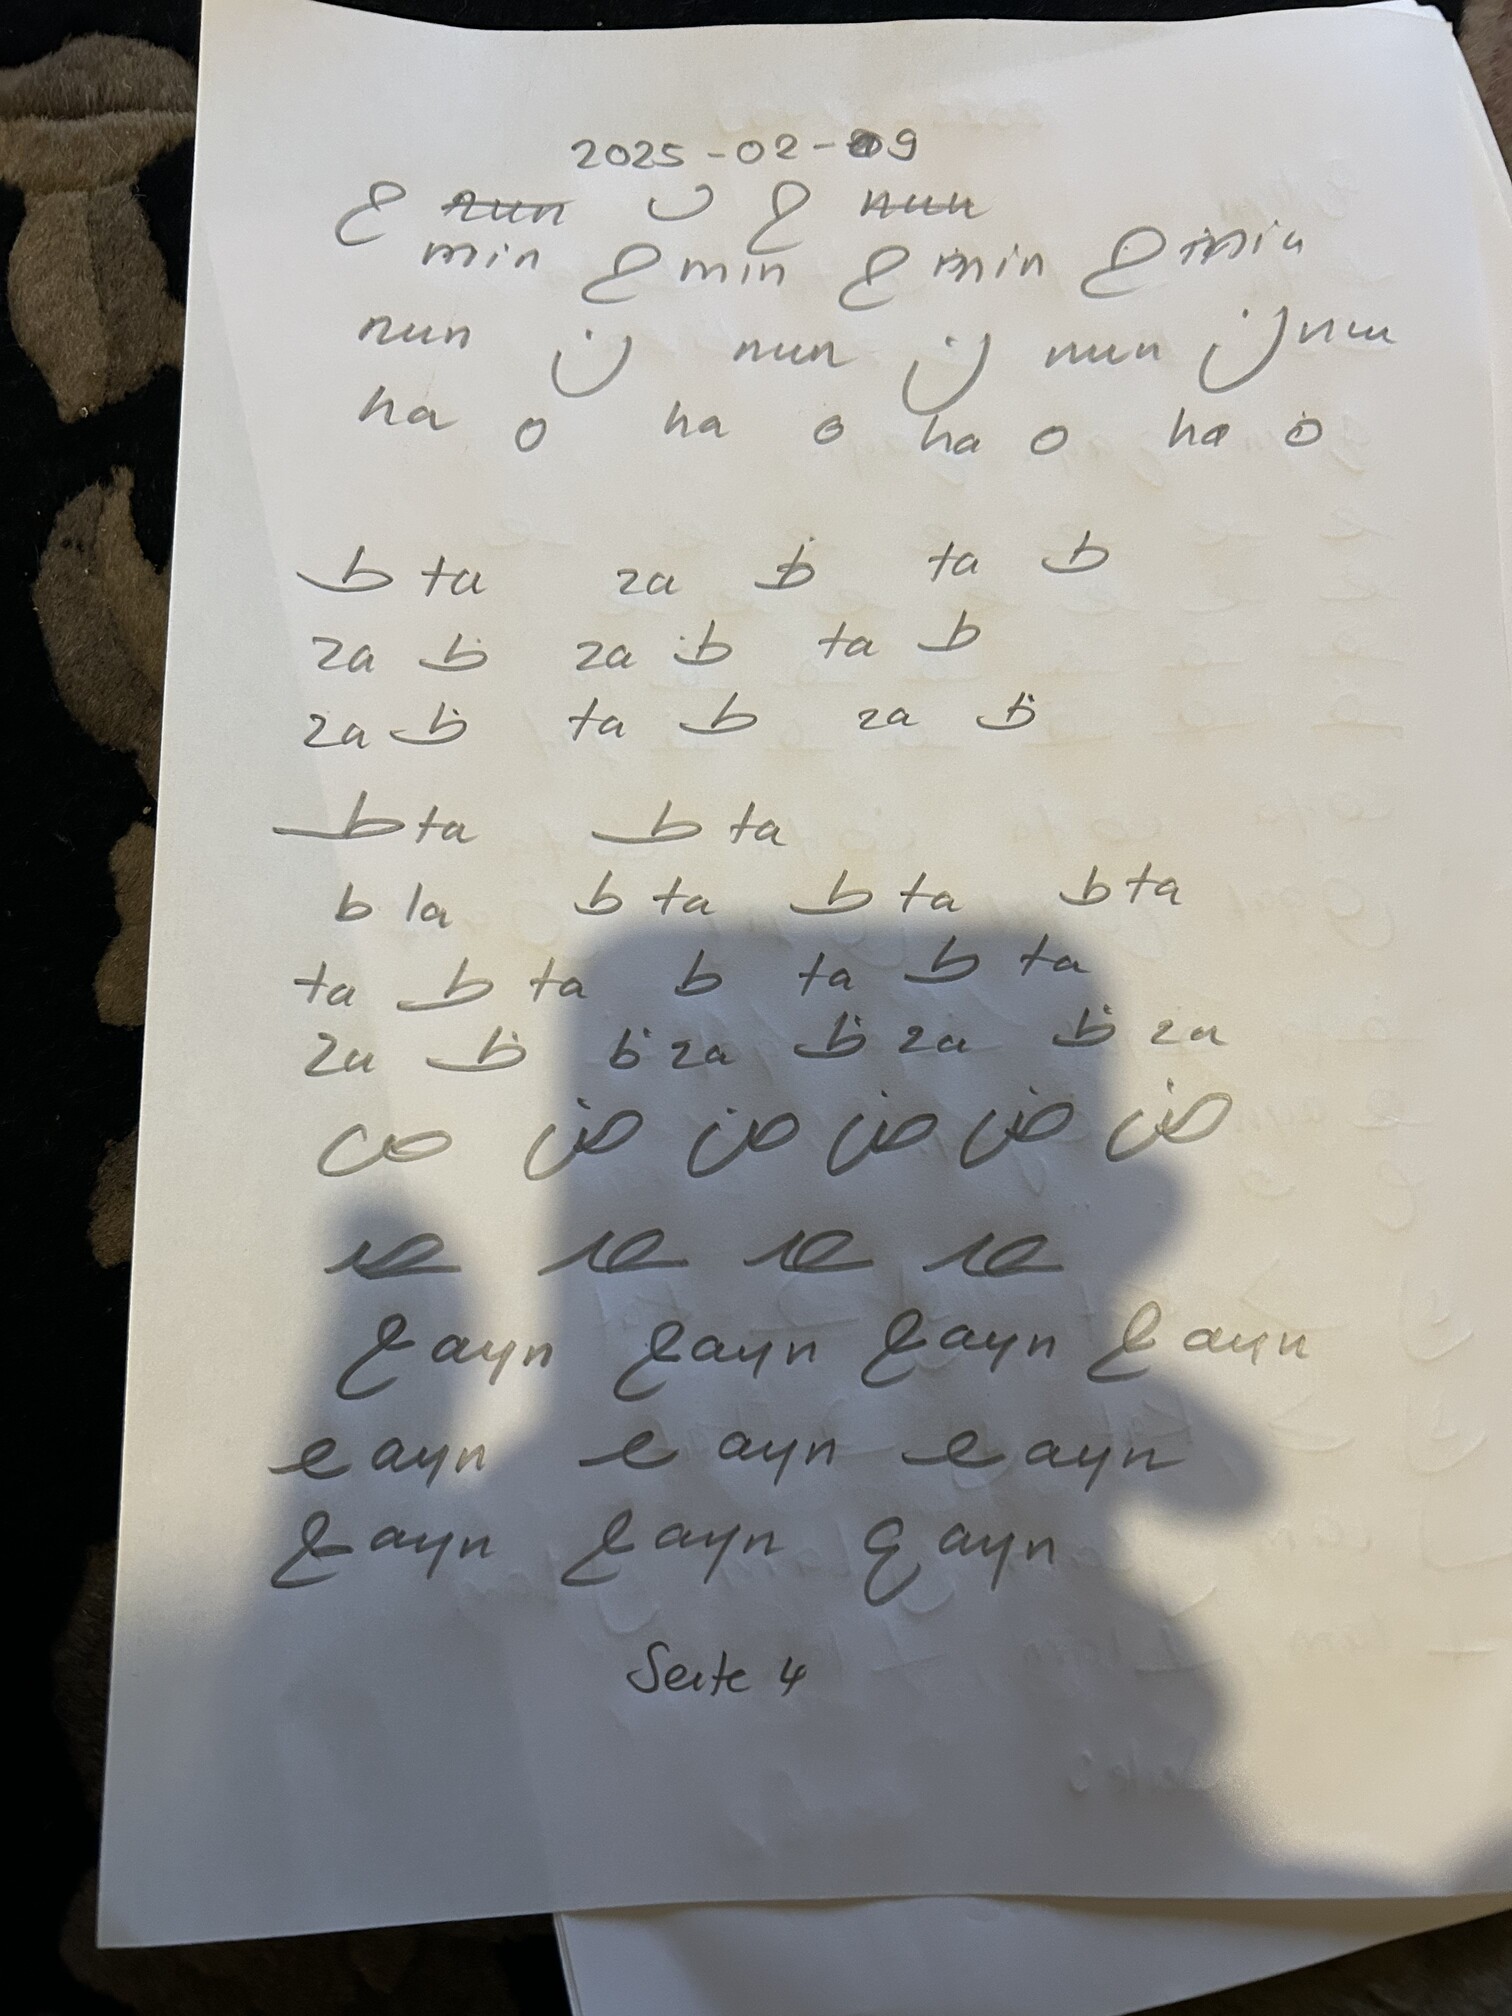 2025-02-09
ع nun ں ع nun
min ع min ع min ع min
nun ن nun ن nun ن nun
ha ه ha ه ha ه ha ه
ط ta za ظ ta ط
za ظ za ظ ta ط
za ظ ta ط za ظ
ط ta ط ta
ط ta ط ta ط ta
ta ط ta ط ta ط ta
za ظ ظ za ظ za ظ za
ص ض ض ض ض ض
ع ayn ع ayn ع ayn ع ayn
ع ayn ع ayn ع ayn
ع ayn ع ayn ع ayn
Seite 4